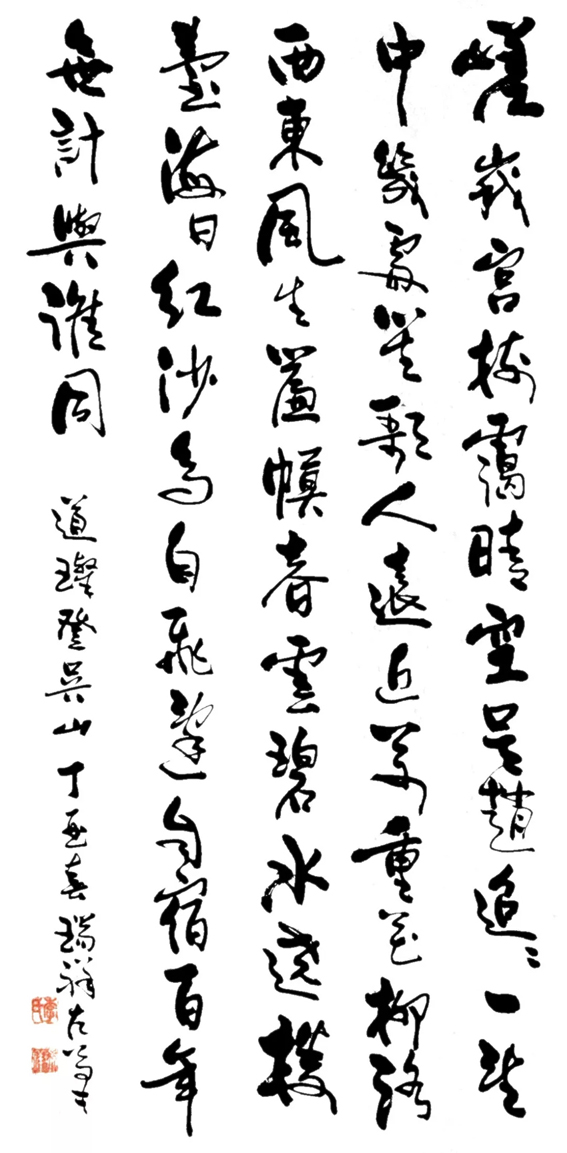 嵯峨宮樹靄晴空吳越迢〻一望
中幾處笙歌人遠近萬重花柳路
西東風生簾幙春雲碧水遶樓
臺海日紅沙鳥自飛蓬自宿百年
無計與誰同
道璨登吳山丁亥春瑞祥左